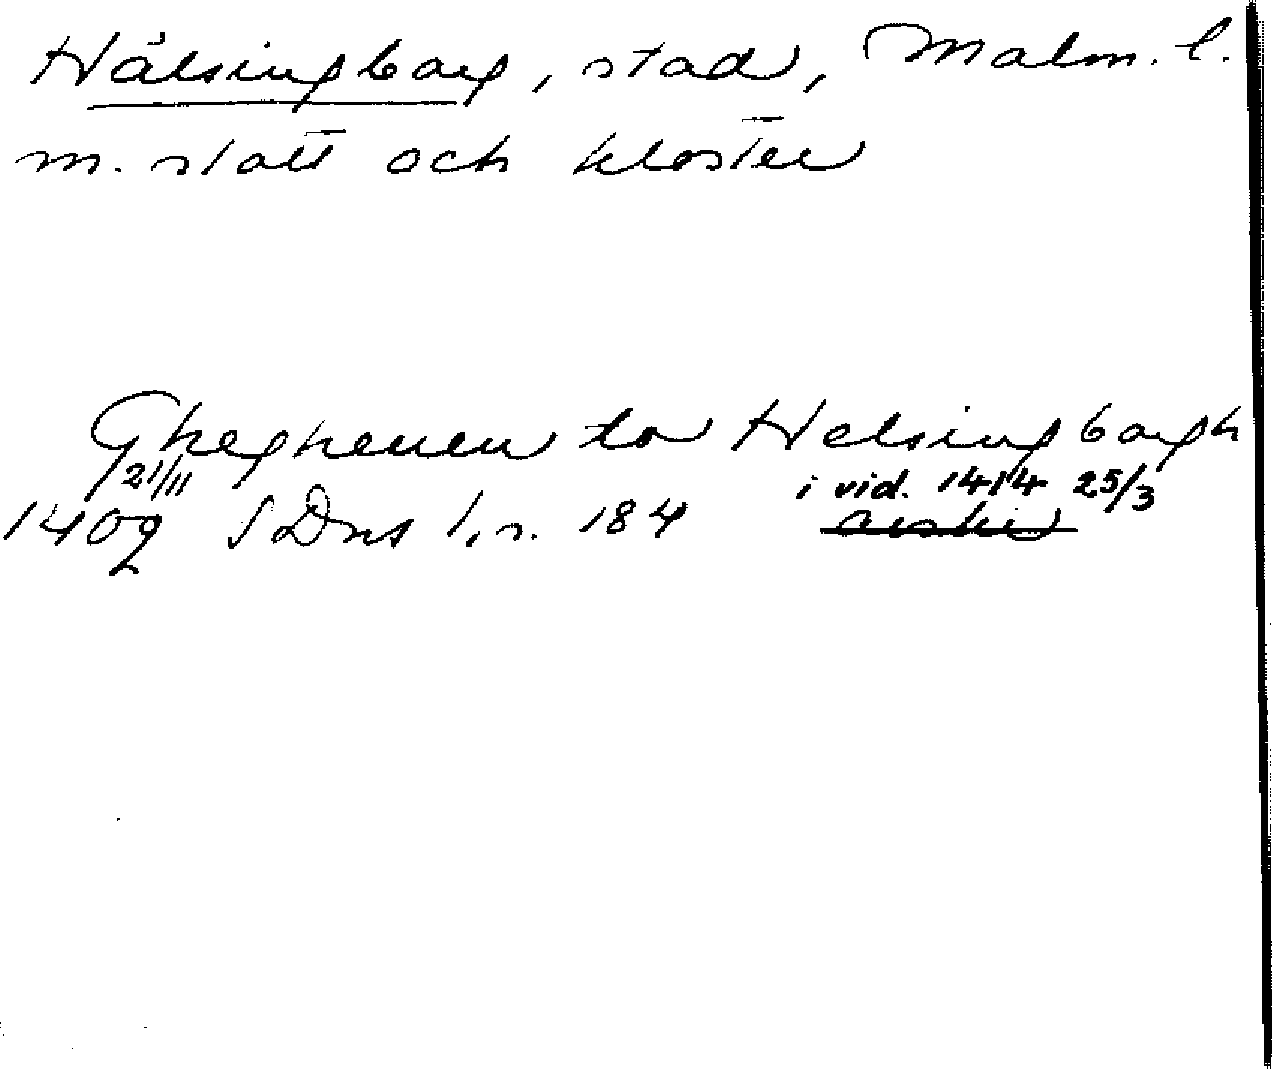 Hälsingborg, stad, Malm. l.
m. slott och kloster
Gheghenen to Helsingborgh
21/11 i vid. 1414 25/3
1409 SDns 2, s. 184